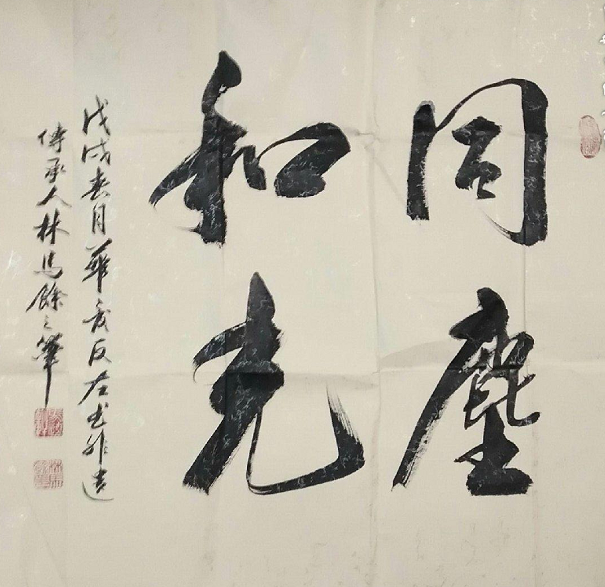 同塵
和光
戊戌春月華夏反左书非遗
傳承人林馬餘之筆